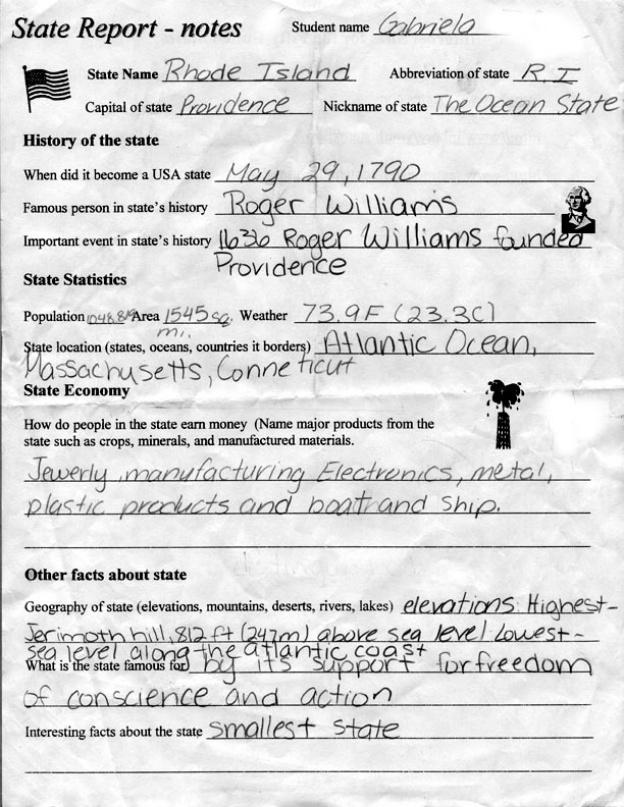 State Report - notes Student name Gabriela
State Name Rhode Island Abbreviation of state R.I
Capital of state Providence Nickname of state The Ocean State
History of the state
When did it become a USA state May 29, 1790
Famous person in state's history Roger Williams
Important event in state's history 1636 Roger Williams founded
Providence
State Statistics
Population 1,048,819 Area 1545 sq. Weather 73.9F (23.3C)
mi.
State location (states, oceans, countries it borders) Atlantic Ocean,
Massachusetts, Conneticut
State Economy
How do people in the state earn money (Name major products from the
state such as crops, minerals, and manufactured materials.
Jewerly, manufacturing Electronics, metal,
plastic products and boat and ship.
Other facts about state
Geography of state (elevations, mountains, deserts, rivers, lakes) elevations: Highest-
Jerimoth hill, 812 ft (247m) above sea level Lowest-
sea level along the atlantic coast
What is the state famous for) by its support for freedom
of conscience and action
Interesting facts about the state smallest state